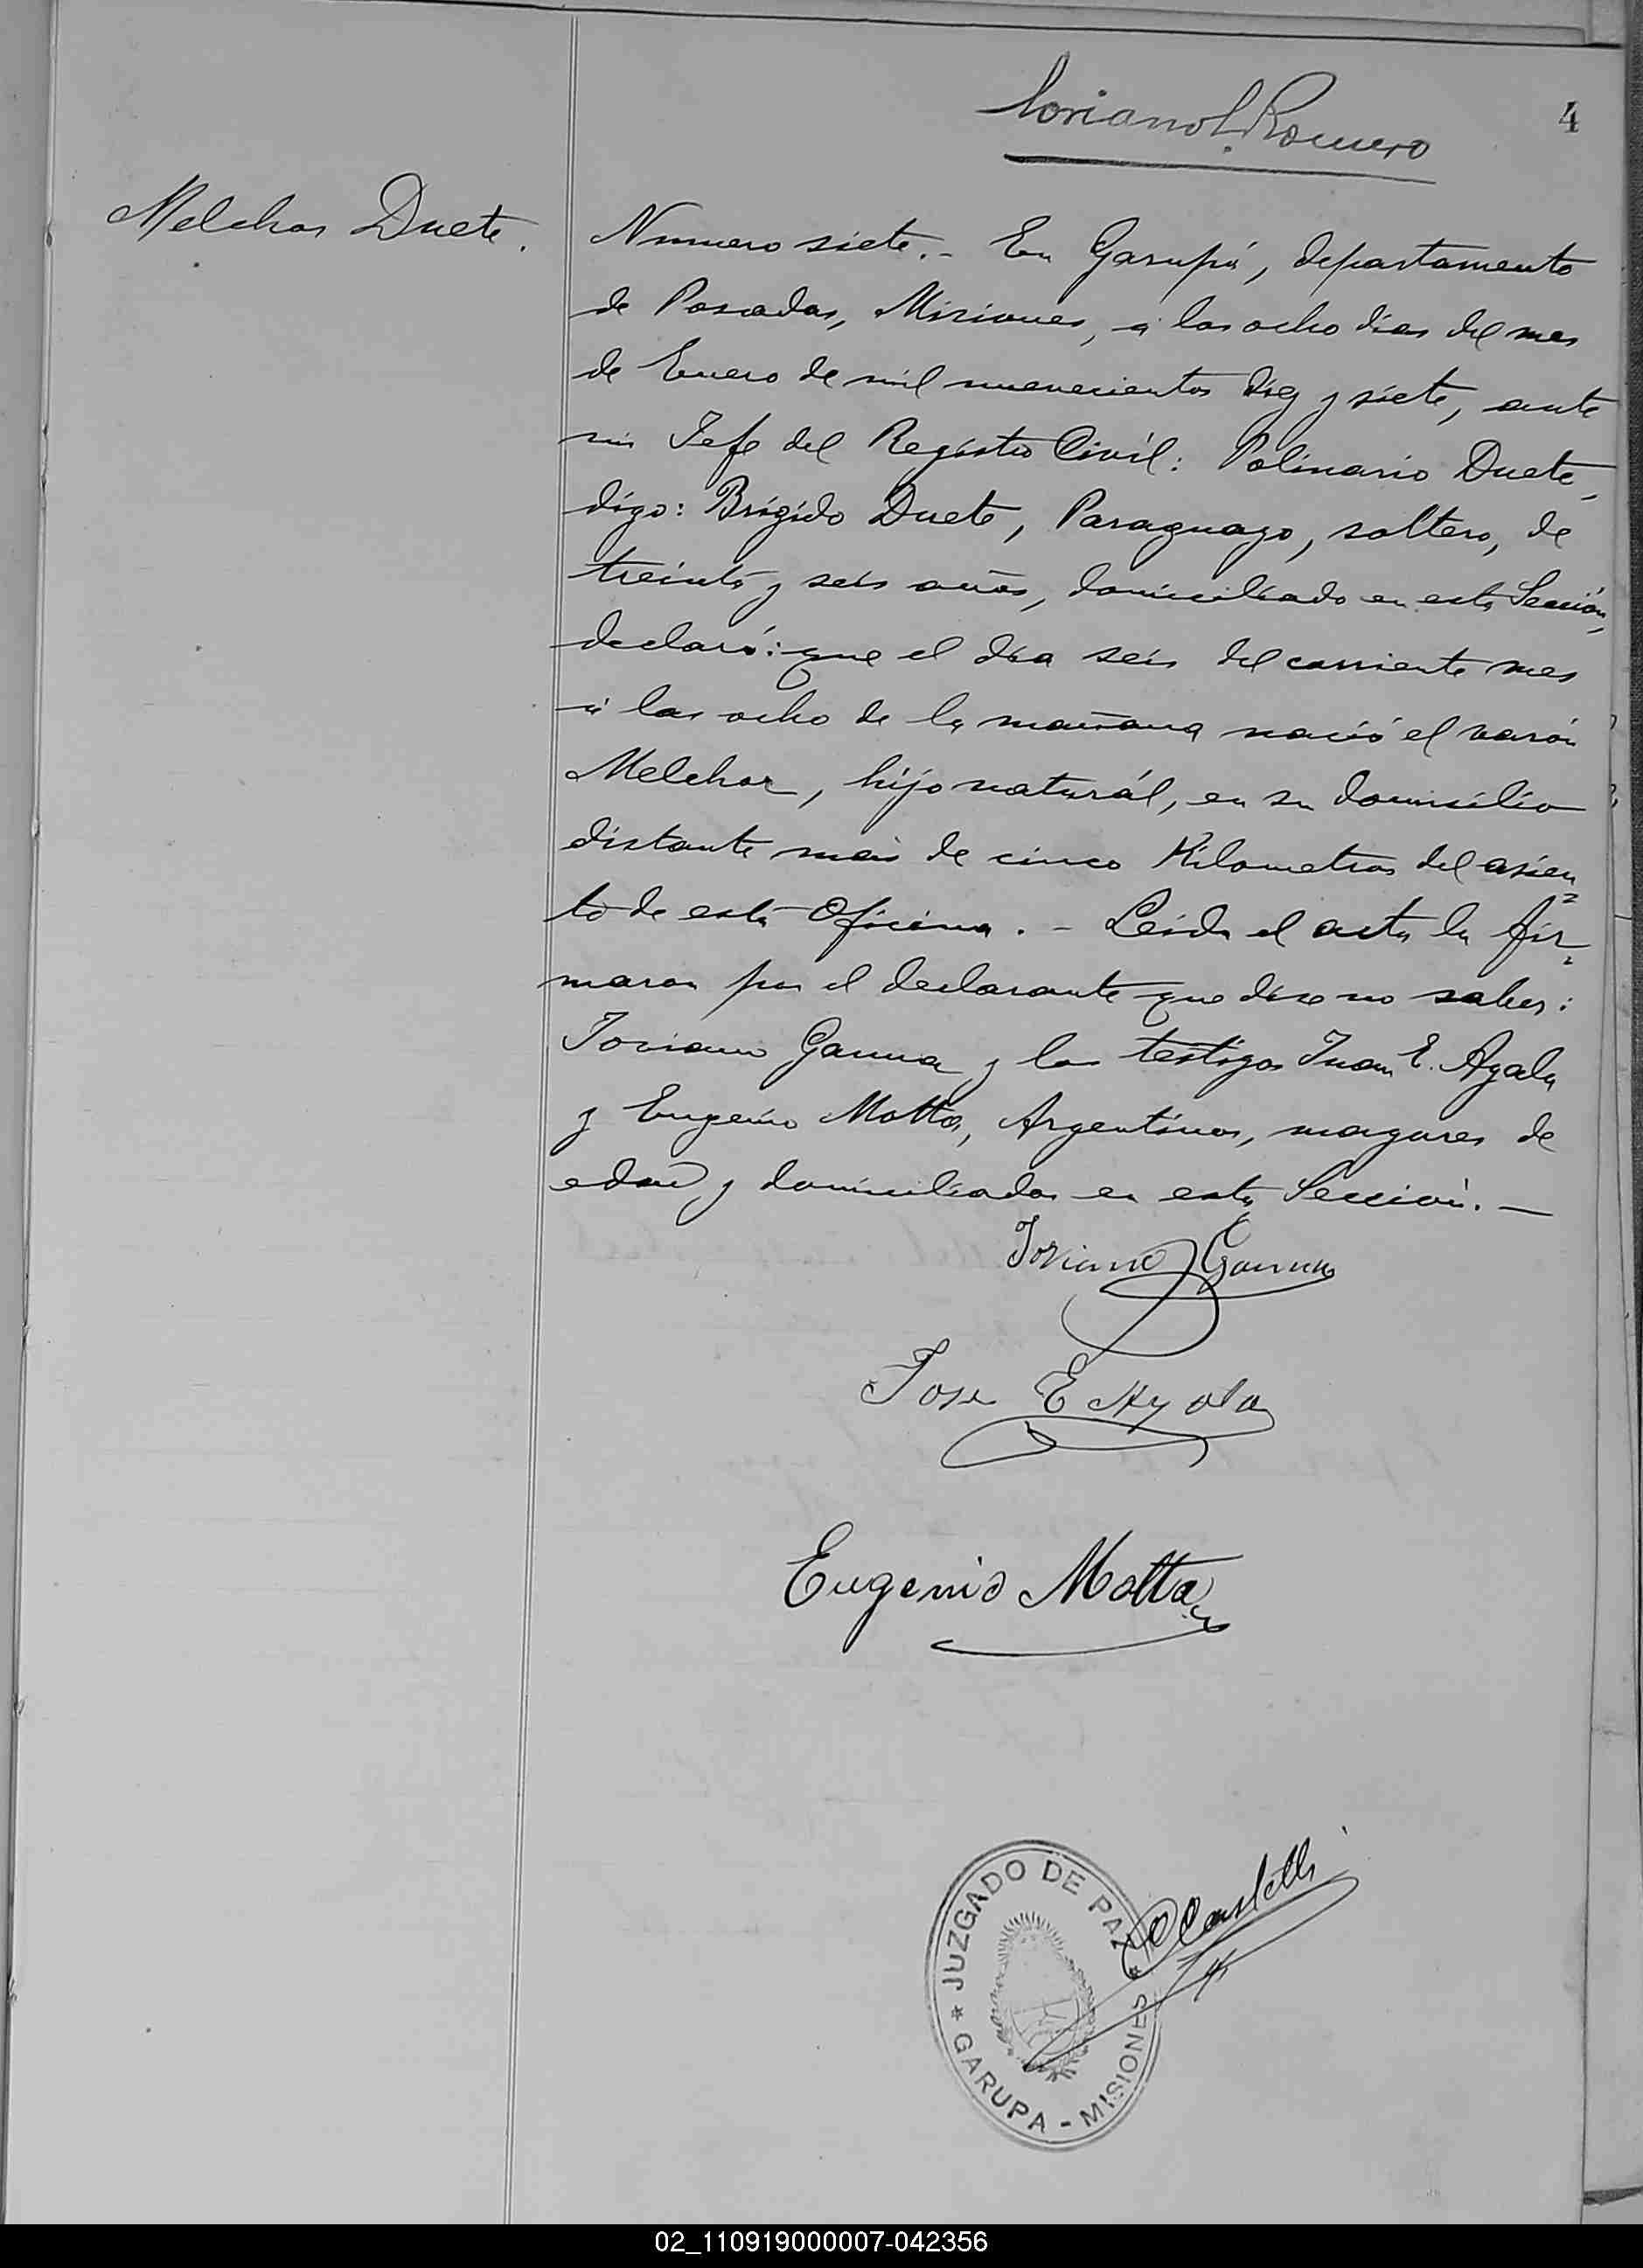 Soriano L. Romero
4
Melchor Duete.
Numero siete.- En Garupá, departamento
de Posadas, Misiones, á los ocho dias del mes
de Enero de mil nuevecientos diez y siete, ante
mi Jefe del Registro Civil: Polinario Duete,
digo: Brígido Duete, Paraguayo, soltero, de
treinta y seis años, domiciliado en esta Sección,
declaró: que el dia seis del corriente mes
á las ocho de la mañana nació el varón
Melchor, hijo naturál, en su domisilio
distante mas de cinco Kilometros del asien=
to de esta Oficina. - Leida el acta la fir=
maron por el declarante que dice no saber:
Toriano Gauna y los testigos Juan E. Ayala
y Eugenio Motta, Argentinos, mayores de
edad y domiciliados en esta Sección. —
Toriano Gauna
Jose E Ayala
Eugenio Motta
JUZGADO DE PAZ
* GARUPA - MISIONES *
02_110919000007-042356